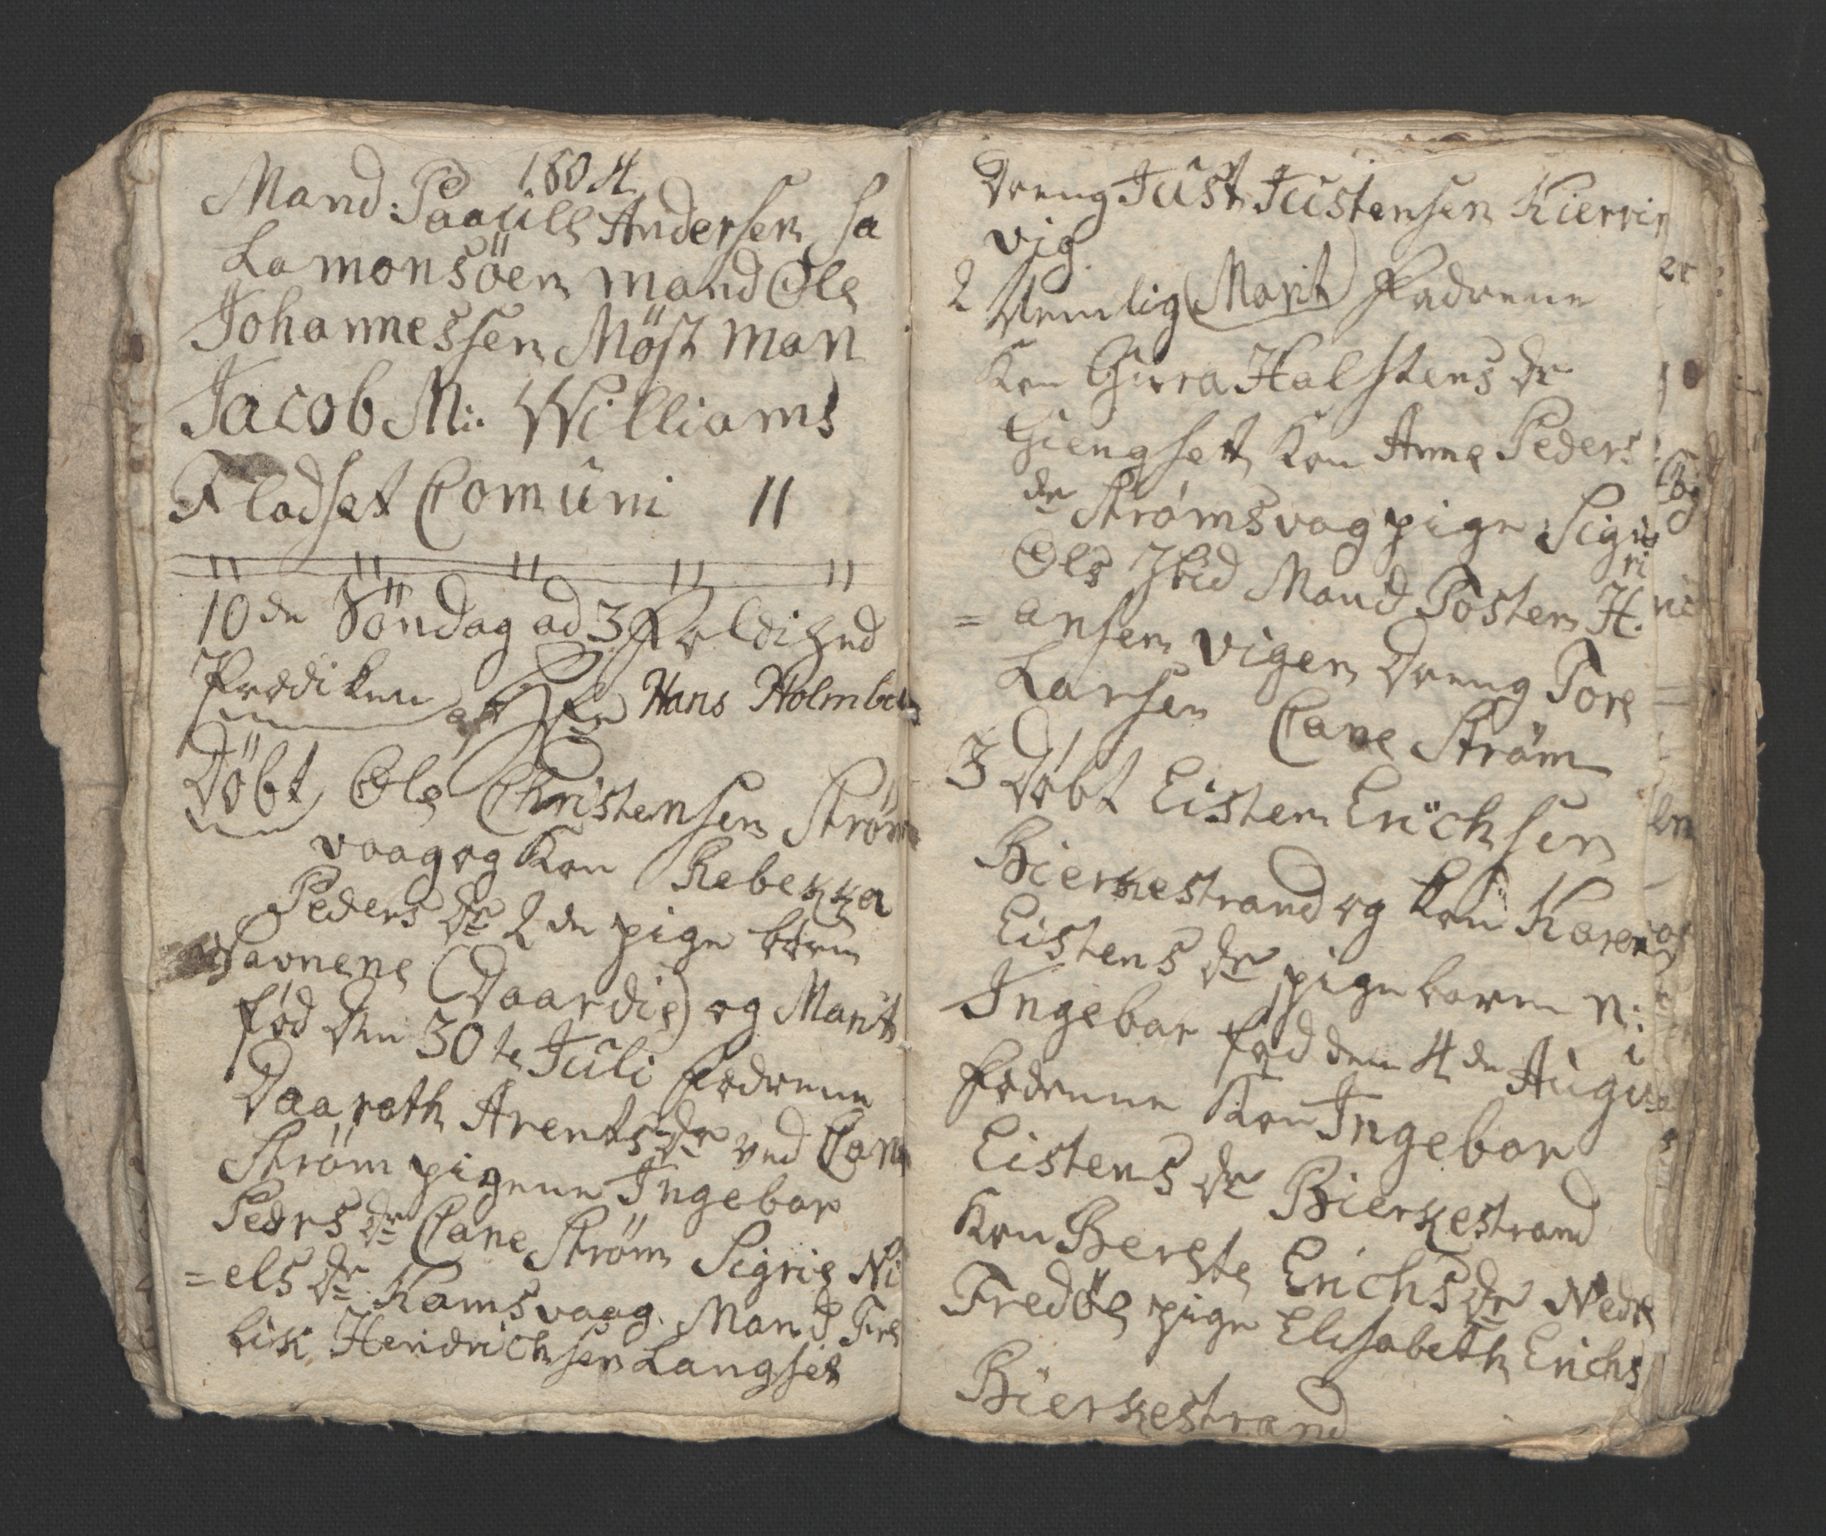 1804
Mand: Paaüll Andersen Sa
Lamonsöen mand Ole
Johannessen Möst man
Jacob M: Williams
Fladset Comüni 11
10 de Söndag ad 3 Foldihed
Prædiken af Hr Hans Holmboe
Döbt Ole Christensen Strøm
vaag og Kon Rebekka
Peders Dr 2 de pige børn
Navnene (Daardie) og Marit
fød den 30 te Jüli Fadrene
Daareth Arents Dr ved Cane
Strøm pigene Ingebor
Peders Dr Cane Strøm Sigrie Ni
=els Dr Ramsvaag. Mand Tre
bik Hendrichsen Langset
Dreng Jüst Jüstensen Kierrin
vig
2 Nemlig (Marit) Fadrene
Kon Gurra Halstens Dr
Giengset Kon Anne Peders
de Strømsvag pige Sigri
ri
Ols Ibid Mand Tosten H.
= ansen vigen Dreng Tore
Larsen Cane Strøm
3 Döbt Eisten Erichsen
Bierkestrand og Kon Karen
Eistens Dr pige barn N:
Ingebor fød den 4 de Augu
i
Fadrene Kon Ingebor
Eistens Dr Bierkestrand
Kon Berete Erichs Dr Nedr
Fredøe pige Elisabeth Erichs
Bierkestrand